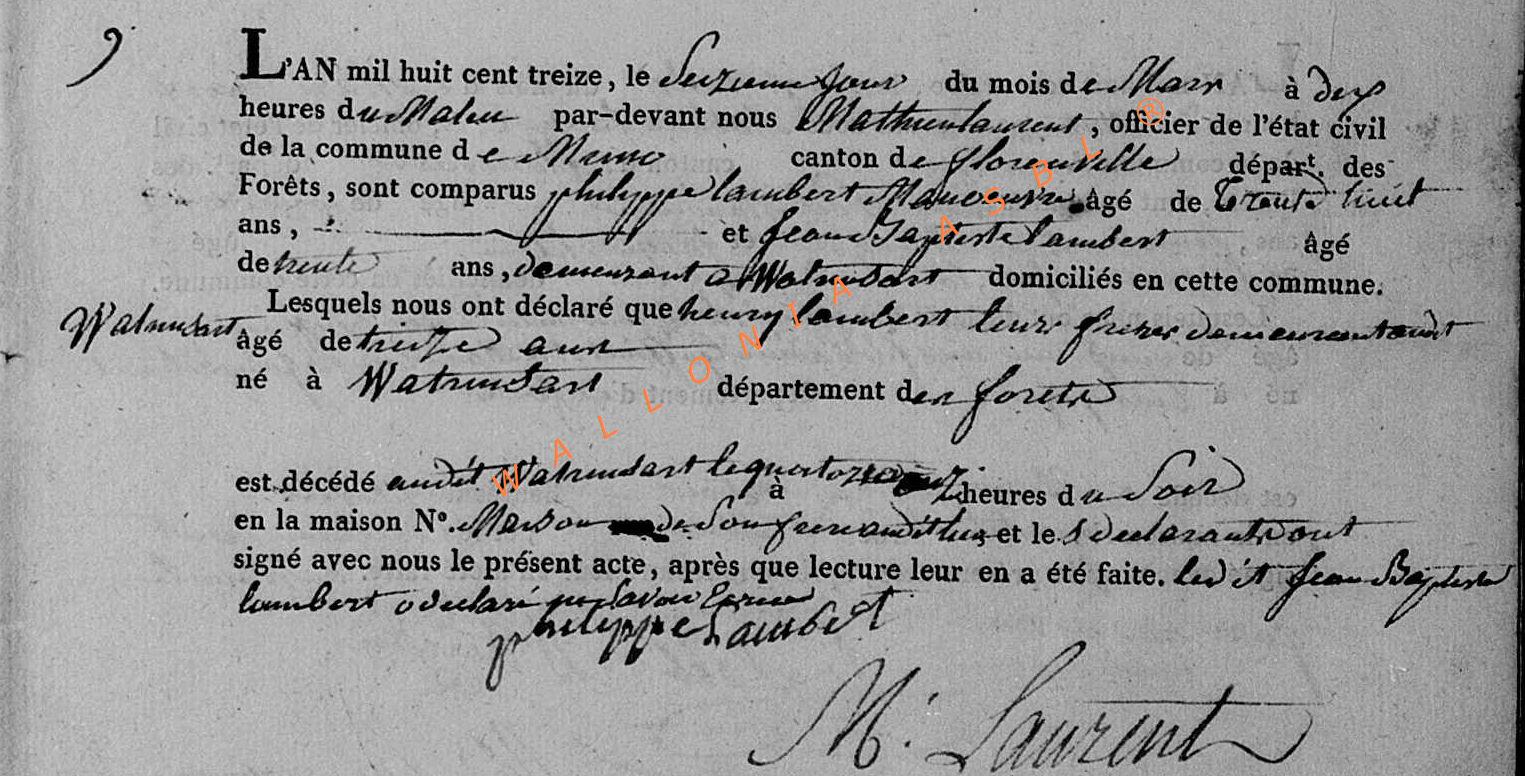 9
L'AN mil huit cent treize, le Seizieme jour du mois de Mars à dix
heures du Matin par-devant nous Mathieu laurent, officier de l'état civil
de la commune de Muno canton de florenville départ. des
Forêts, sont comparus philippe lambert Manoeuvre âgé de trente huit
ans, et Jean Baptiste lambert âgé
de trente ans, demeurant a Watrinsart domiciliés en cette commune.
Lesquels nous ont déclaré que henry lambert leur frere demeurant audit
Watrinsart
âgé de treize ans
né à Watrinsart département des forets
est décédé audit Watrinsart le quatorze à heures du Soir
en la maison N°. Maison de Son frere audit lieu et les declarants ont
signé avec nous le présent acte, après que lecture leur en a été faite. ledit Jean Baptiste
lambert a declaré ne Savoir Ecrire
philippe Lambert
M. Laurent
WALLONIA ASBL ®